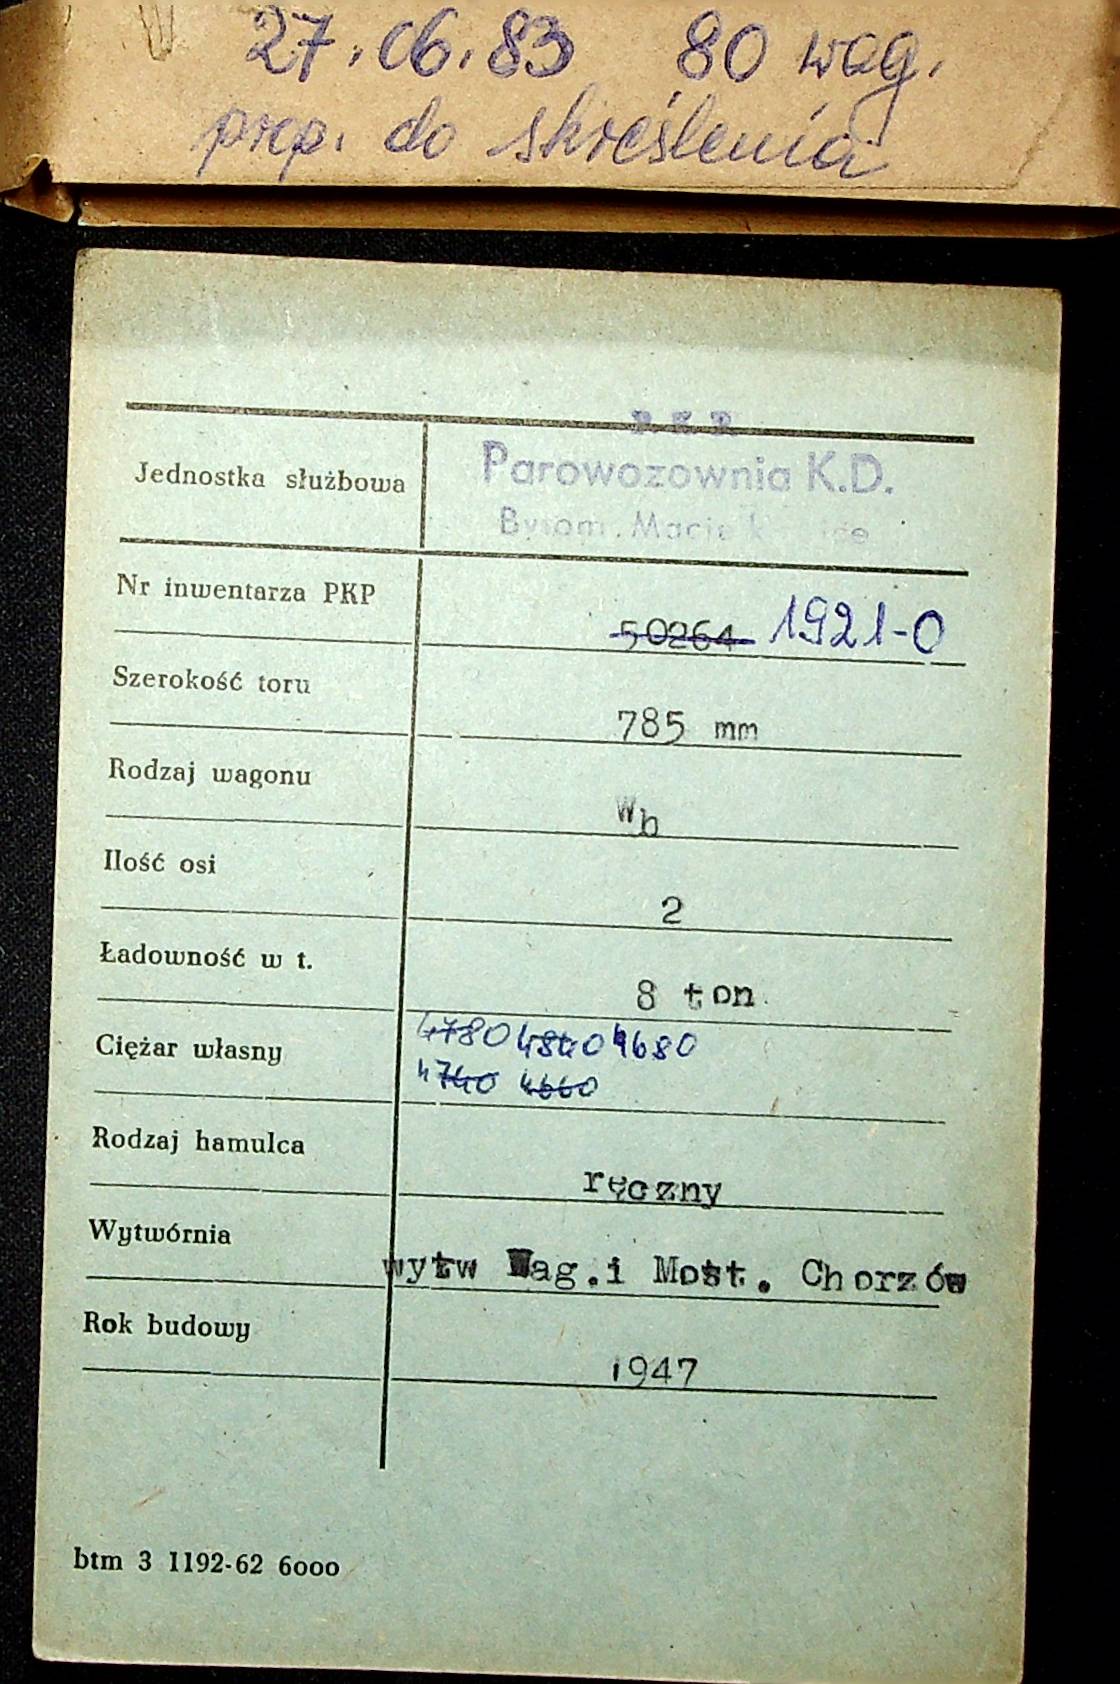 27.06.83 80 wag.
prop. do skreślenia
P.K.P.
Jednostka służbowa Parowozownia K.D.
Bytom.
Nr inwentarza PKP 50264 1921-0
Szerokość toru 785 mm
Rodzaj wagonu Wb
Ilość osi 2
Ładowność w t. 8 ton.
Ciężar własny 4780 4840 4680
4740 4660
Rodzaj hamulca ręczny
Wytwórnia wytw Wag.i Most. Chorzów
Rok budowy 1947
btm 3 1192-62 6000